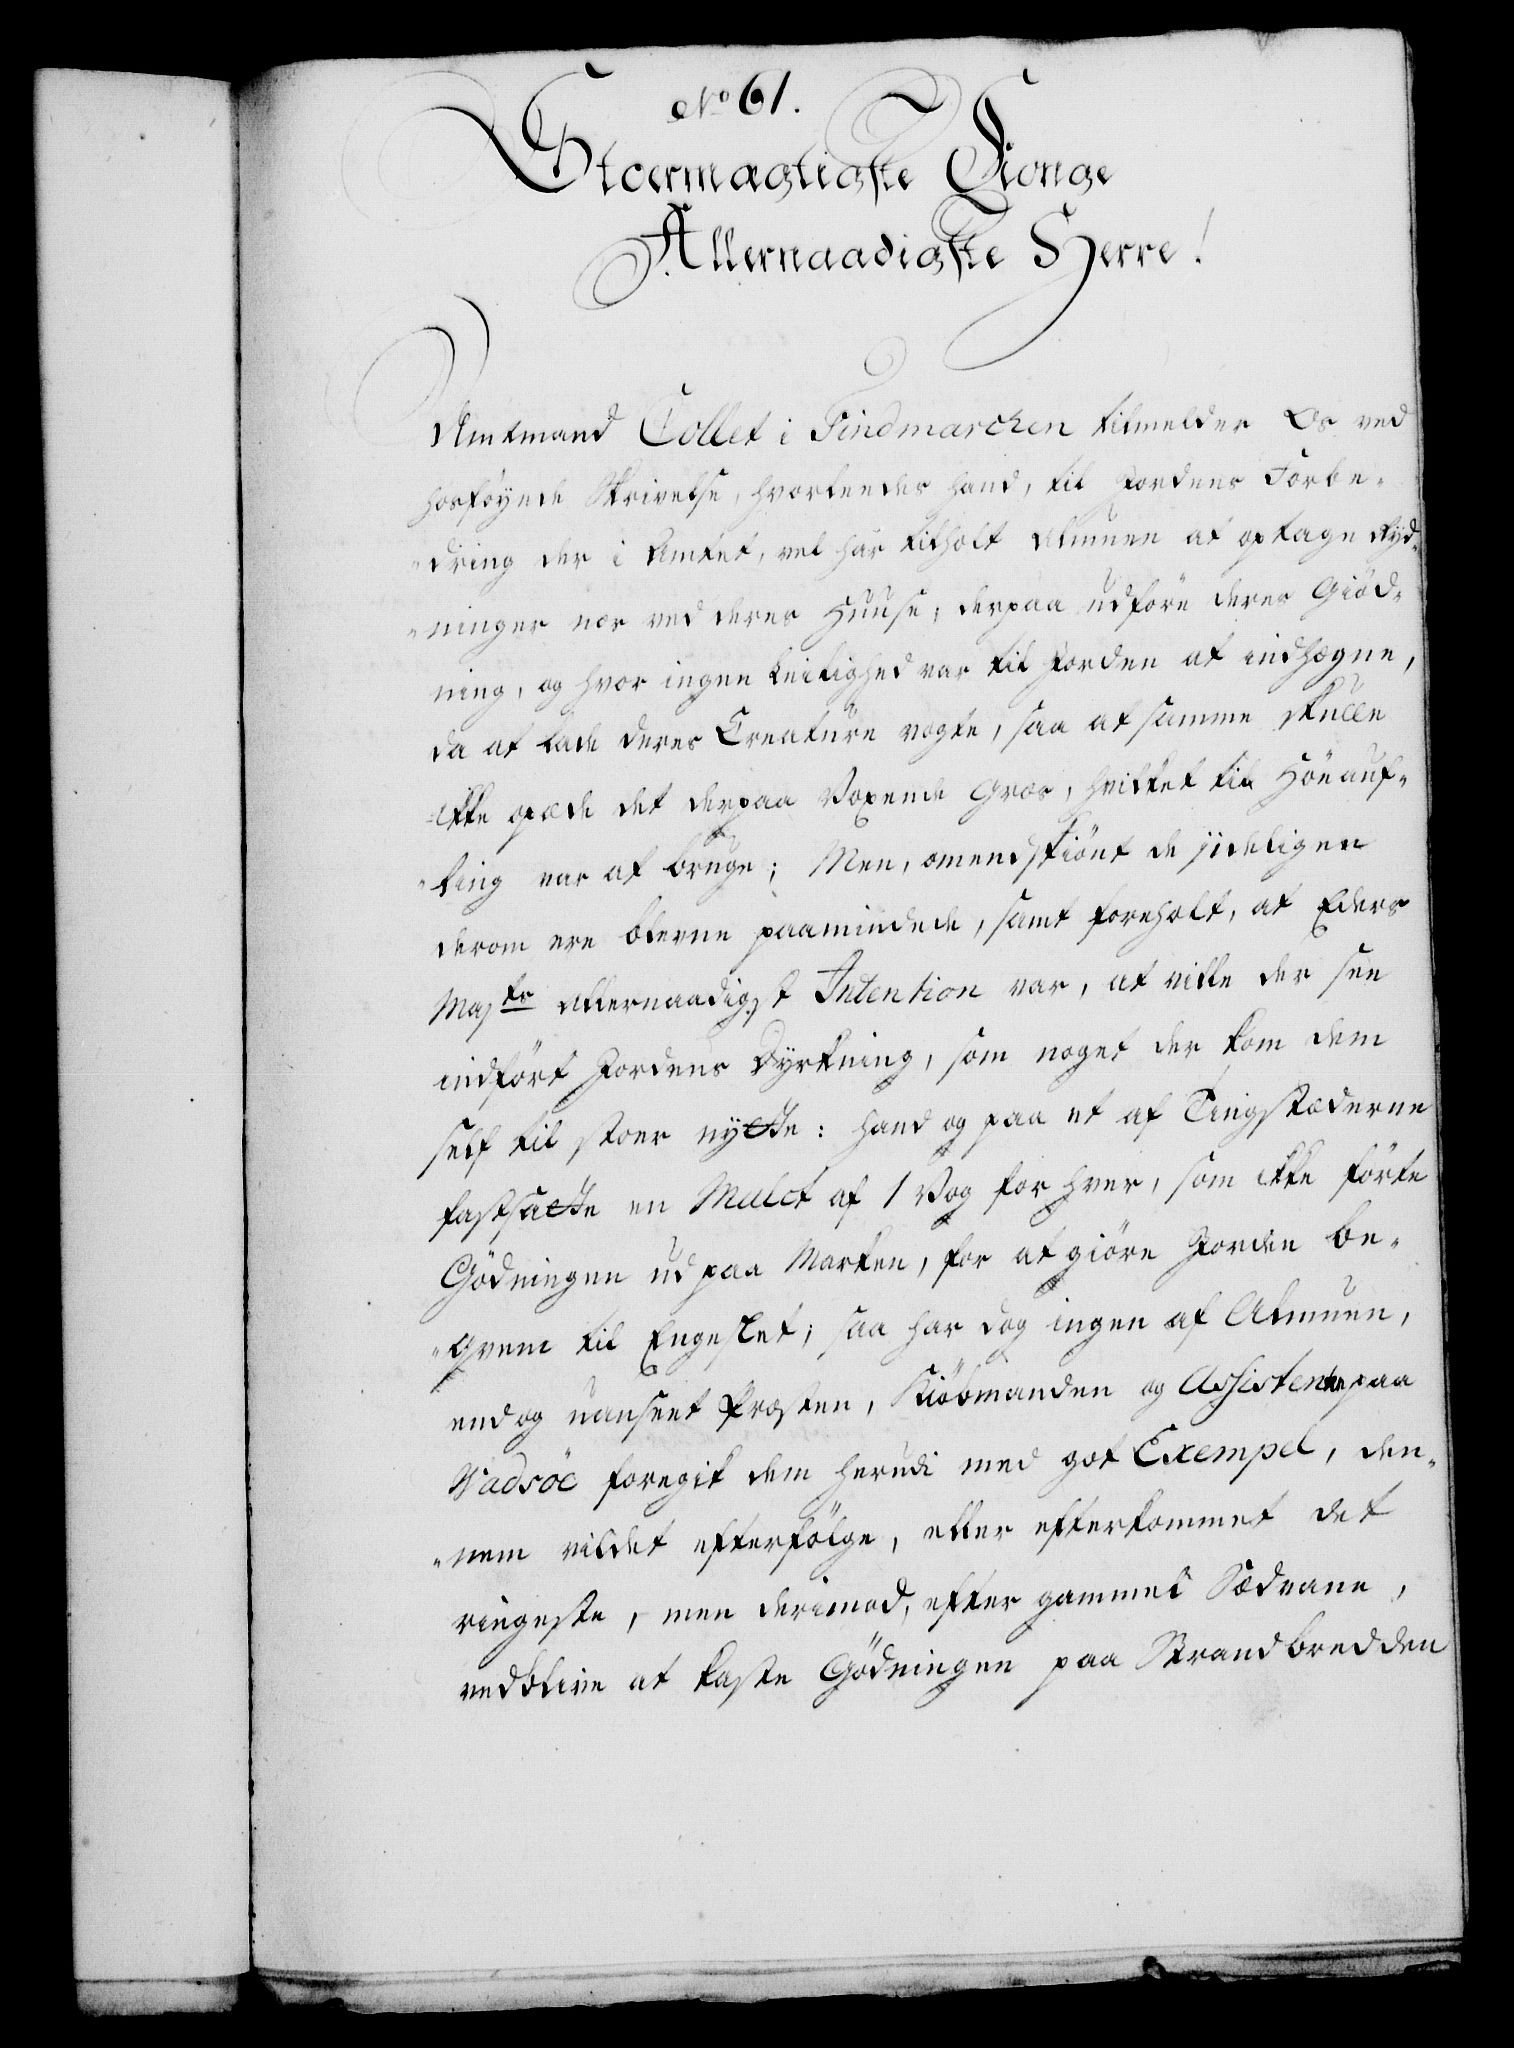 No 61.
Stoermægtigste Konge
Allernaadigste Herre!
Amtmand Collet i Findmarchen tilmelder Os ved
hosföyede Skrivelse, hvorledes hand, til Jordens Forbe-
-dring der i Amtet, vel har tilholt Almuen at optage Ryd-
-ninger nær ved deres Huuse, derpaa udföre deres Giöd-
ning, og hvor ingen Leilighed var til Jorden at indhægne,
da at lade deres Creature vogte, saa at samme skulle
ikke opæde det derpaa Voxende Græs, hvilket til Höeauf-
-ling var at bruge; Men, omendskiönt de jideligen
derom ere blevne paamindede, samt foreholt, at Eders
Majts Allernaadigst Intention var, at ville der see
indfört Jordens Dyrkning, som noget der kom dem
self til stoer nytte: hand og paa et af Tingstæderne
fastsatte en Mulct af 1 Vog for hver, som ikke förte
Gödningen ud paa Marken, for at giöre Jorden be-
-qvem til Engeslet; saa har dog ingen af Almuen,
endog uanseet Præsten, Kiöbmanden og Assistenten paa
Vadsöe foregik dem herudi med got Exempel, den-
-nem vildet efterfölge, eller efterkommet det
ringeste, men derimod, efter gammel Sædvane,
vedblive at kaste Gödningen paa Strandbredden